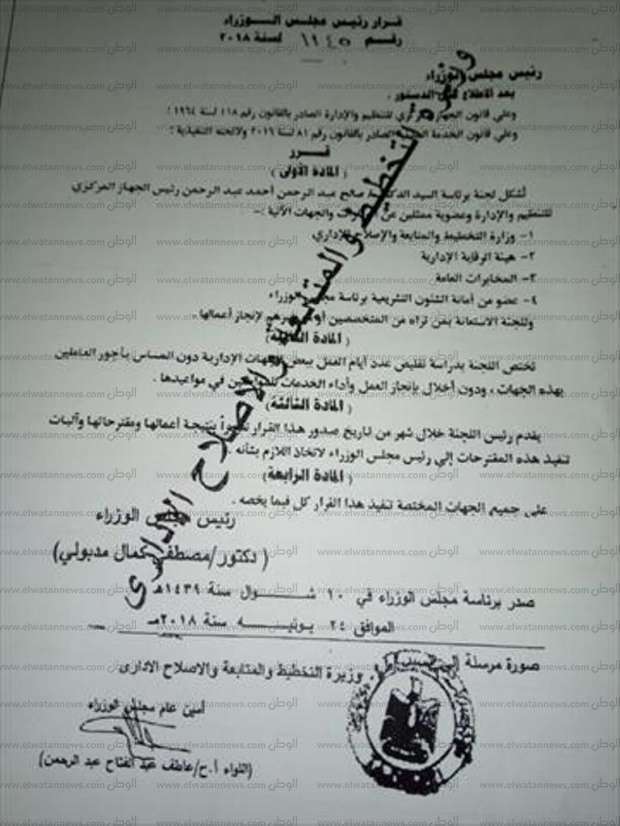 قرار رئيس مجلس الوزراء
رقم ١١٤٥ لسنة ٢٠١٨
رئيس مجلس الوزراء
بعد الاطلاع على الدستور ،
وعلى قانون الجهاز المركزي للتنظيم والإدارة الصادر بالقانون رقم ١١٨ لسنة ١٩٦٤ ؛
وعلى قانون الخدمة المدنية الصادر بالقانون رقم ٨١ لسنة ٢٠١٦ ولائحته التنفيذية ؛
قــرر
(المادة الأولى)
تُشكل لجنة برئاسة السيد الدكتور صالح عبد الرحمن أحمد عبد الرحمن رئيس الجهاز المركزي
للتنظيم والإدارة وعضوية ممثلين عن الوزارات والجهات الآتية :-
١- وزارة التخطيط والمتابعة والإصلاح الإداري
٢- هيئة الرقابة الإدارية
٣- المخابرات العامة
٤- عضو من أمانة الشئون التشريعية برئاسة مجلس الوزراء
وللجنة الاستعانة بمن تراه من المتخصصين أو غيرهم لإنجاز أعمالها.
(المادة الثانية)
تختص اللجنة بدراسة تقليص عدد أيام العمل ببعض الجهات الإدارية دون المساس بأجور العاملين
بهذه الجهات ، ودون أخلال بإنجاز العمل وأداء الخدمات للمواطنين في مواعيدها .
(المادة الثالثة)
يقدم رئيس اللجنة خلال شهر من تاريخ صدور هذا القرار تقريراً بنتيجة أعمالها ومقترحاتها وآليات
تنفيذ هذه المقترحات إلى رئيس مجلس الوزراء لاتخاذ اللازم بشأنه .
(المادة الرابعة)
على جميع الجهات المختصة تنفيذ هذا القرار كل فيما يخصه .
رئيس مجلس الوزراء
(دكتور/مصطفى كمال مدبولي)
صدر برئاسة مجلس الوزراء في ١٠ شـــوال سنة ١٤٣٩هـ
الموافق ٢٤ يونيـــه سنة ٢٠١٨مـ
صورة مرسلة إلى السيد وزيرة التخطيط والمتابعة والاصلاح الادارى
أمين عام مجلس الوزراء
(اللواء أ.ح/عاطف عبد الفتاح عبد الرحمن)
والتخطيط والمتابعة والاصلاح الإداري
الوطن www.elwatannews.com